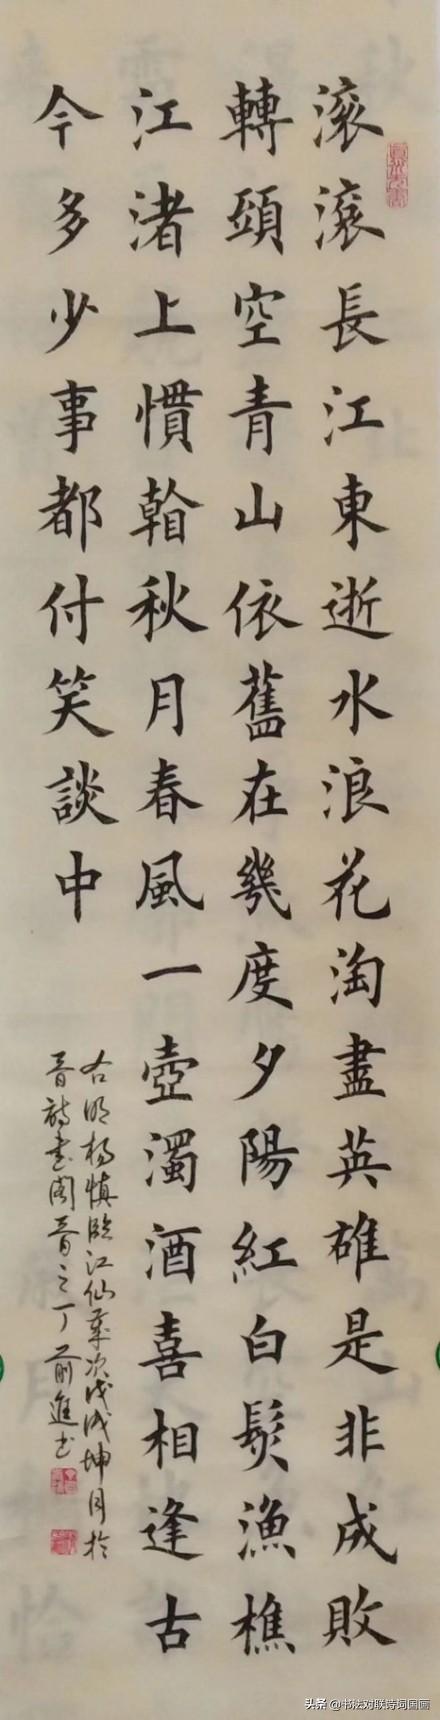 滚滚長江東逝水浪花淘盡英雄是非成敗
轉頭空青山依舊在幾度夕陽紅白髮漁樵
江渚上慣看秋月春風一壺濁酒喜相逢古
今多少事都付笑談中
右明楊慎臨江仙歲次戊戌坤月於
晉詩書閣晉之丁前進书
头条 @书法对联诗词国画